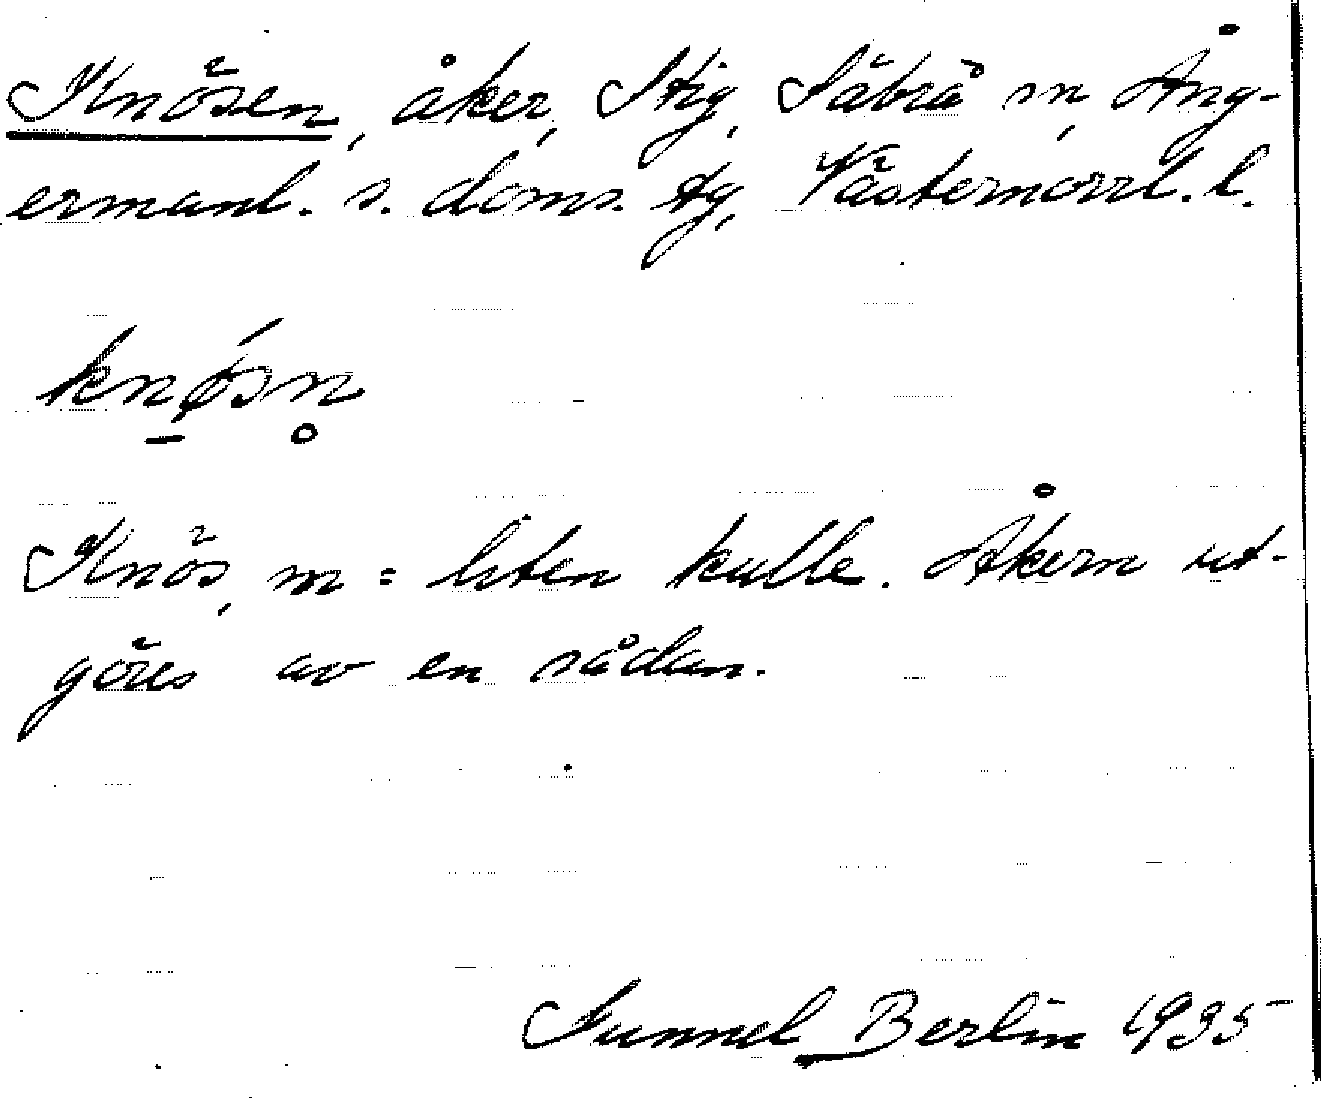 Knösen, åker, Stig, Säbrå sn, Ång-
ermanl. s. doms. tg, Västernorrl. l.
knǿ̱sn̥
Knös, m = liten kulle. Åkern ut-
göres av en sådan.
Gunnel Berlin 1935